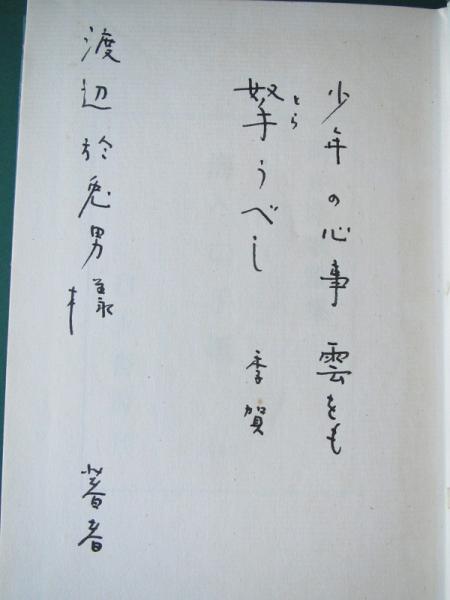 少年の心事 雲をも
拏うべし 李賀
とら
渡辺於兎男様
著者